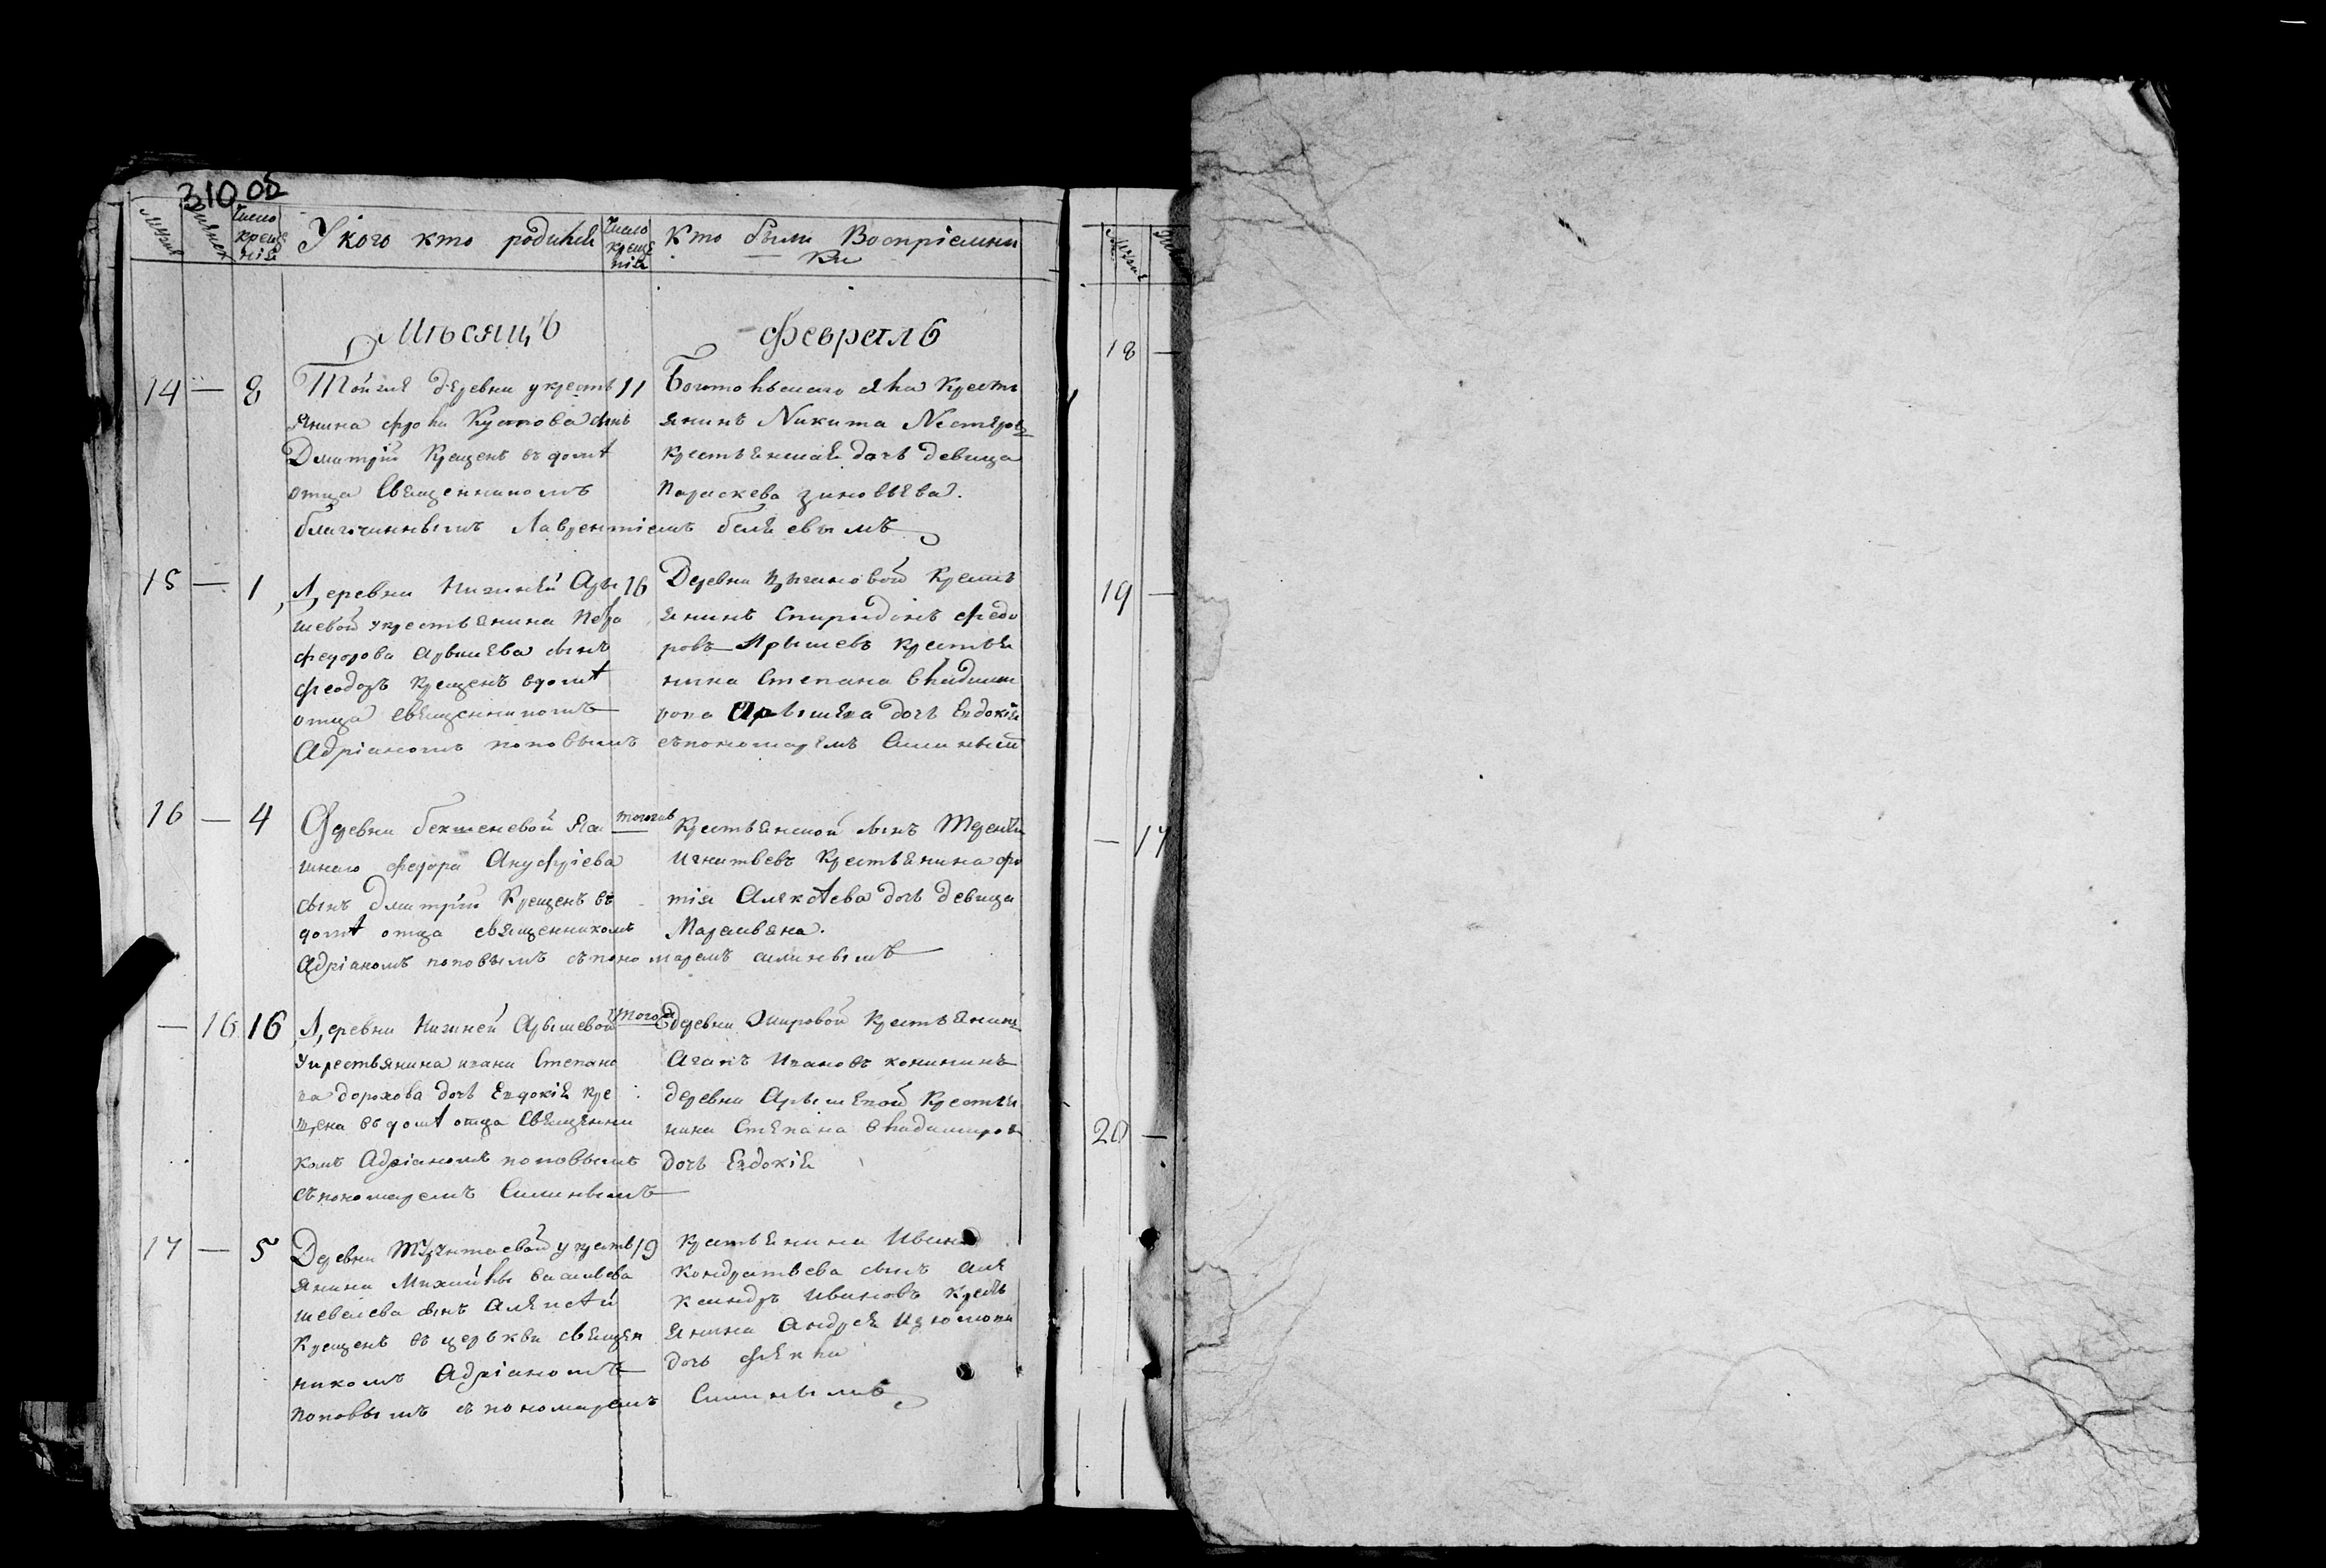 310 об
Мужск Женск Число креще нія У кого кто родился Число креще нія Кто были Воспріемни ки
Мѣсяцъ Февраль
14 — 8 Той же деревни у кресть 11
янина Фрола Кустова сынъ
Дмитрій Крещенъ въ домѣ
отца Священникомъ
благочиннымъ Лаврентіемъ Беляевымъ
яна Кресть
янинъ Никита Нестеров
крестьянская дочь девица
Параскева Зиновьева.
15 — 1 Деревни Нижней Ары 16
шевой у крестьянина Петра
Федорова Арышева сынъ
Феодоръ Крещенъ в домѣ
отца священникомъ
Адріаномъ Поповымъ съ пономаремъ Силинымъ
Деревни Цыгановой Кресть
янинъ Спиридонъ Федо
ровъ Арышевъ Крестья
нина Степана Владими
рова Арышева дочь Евдокія
16 — 4 Деревни Бекшеневой
Федора Ануфріева
сынъ Дмитрій Крещенъ въ
домѣ отца священникомъ
Адріаномъ Поповымъ съ пономаремъ Силинымъ
тогожъ Крестьянской сынъ Терентій
Игнатьевъ Крестьянина Фо
тія Алексѣева дочь девица
Марамьяна.
— 16 16 Деревни Нижней Арышевой тогож
У крестьянина Ивана Степано
ва Дорохова дочь Евдокія Кре
щена въ домѣ отца Священни
комъ Адріаномъ Поповымъ
съ пономаремъ Силинымъ
деревни Омировой Крестьянинъ
Агапъ Ивановъ Конининъ
деревни Арышевой Крестья
нина Степана Владимиров
дочь Евдокія
17 — 5 Деревни у кресть 19
янина Михайлы Васильева
Шевелева сынъ Алексѣй
Крещенъ въ церькви священ
никомъ Адріаномъ
Поповымъ съ пономаремъ Силинымъ
Крестьянина Ивана
Кондратьева сынъ Але
ксандръ Ивановъ Кресть
янина Андрея Изюмова
дочь Фекла
Мужск
18 —
19 —
— 17
20 —